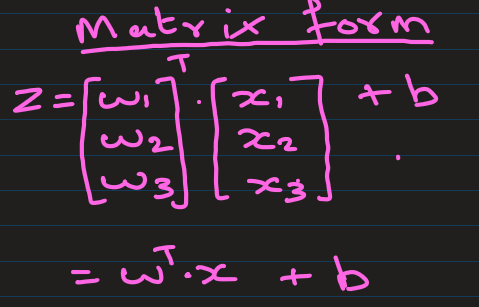 Matrix form
z = [ω₁ ω₂ ω₃]ᵀ · [x₁ x₂ x₃] + b
= ωᵀ · x + b